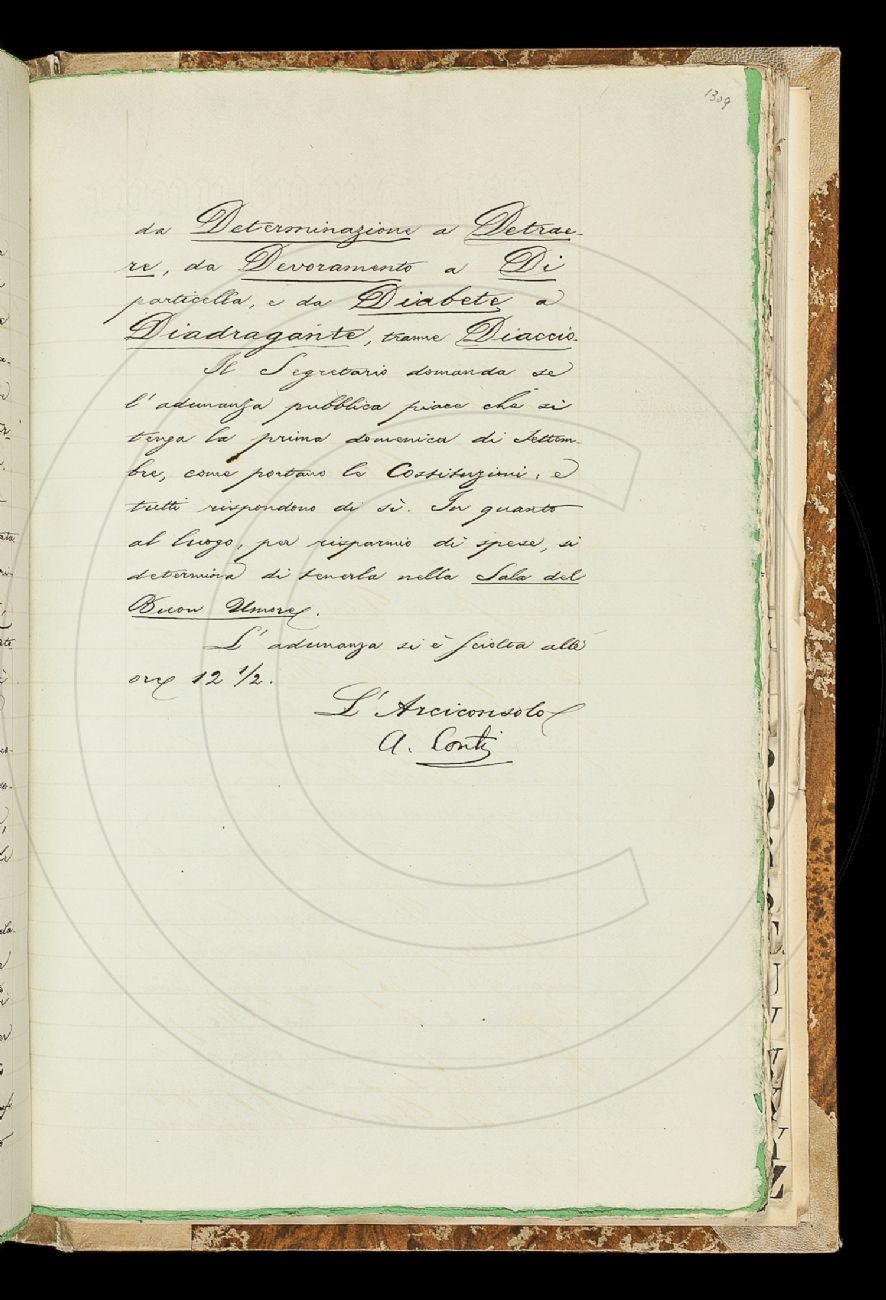 1309
da Determinazione a Detrae-
re, da Devoramento a Di
particella, e da Diabete a
Diadragante, tranne Diaccio.
Il Segretario domanda se
l'adunanza pubblica piace che si
tenga la prima domenica di Settem-
bre, come portano le Costituzioni, e
tutti rispondono di sì. In quanto
al luogo, per risparmio di spese, si
determina di tenerla nella Sala del
Buon Umore.
L'adunanza si è sciolta alle
ore 12 1/2.
L'Arciconsolo
A. Conti